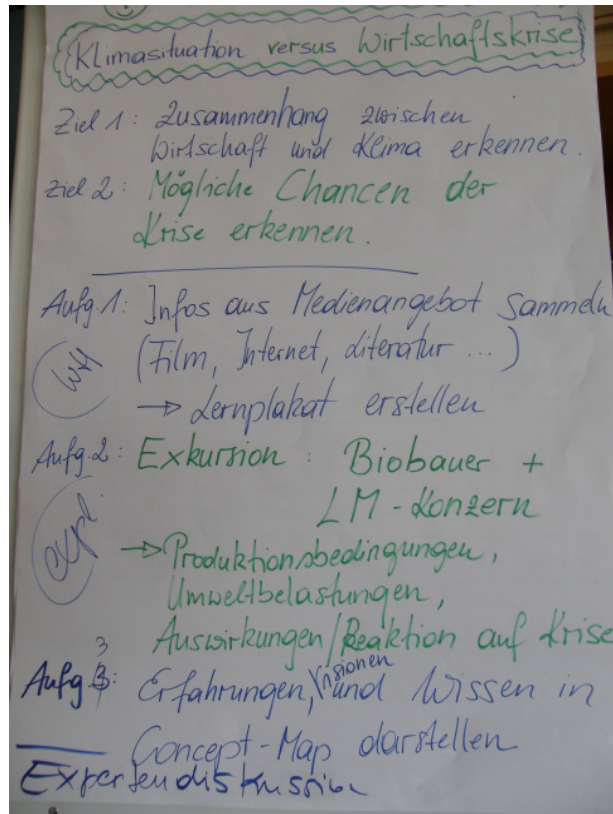 Klimasituation versus Wirtschaftskrise
Ziel 1: Zusammenhang zwischen
Wirtschaft und Klima erkennen.
Ziel 2: Mögliche Chancen der
Krise erkennen.
Aufg. 1: Infos aus Medienangebot sammeln
(Film, Internet, Literatur ...)
→ Lernplakat erstellen
Aufg. 2: Exkursion: Biobauer +
LM-Konzern
expl.
→ Produktionsbedingungen,
Umweltbelastungen,
Auswirkungen/Reaktion auf Krise
3
Aufg. 3: Erfahrungen, Visionen und Wissen in
Concept-Map darstellen
Expertendiskussion